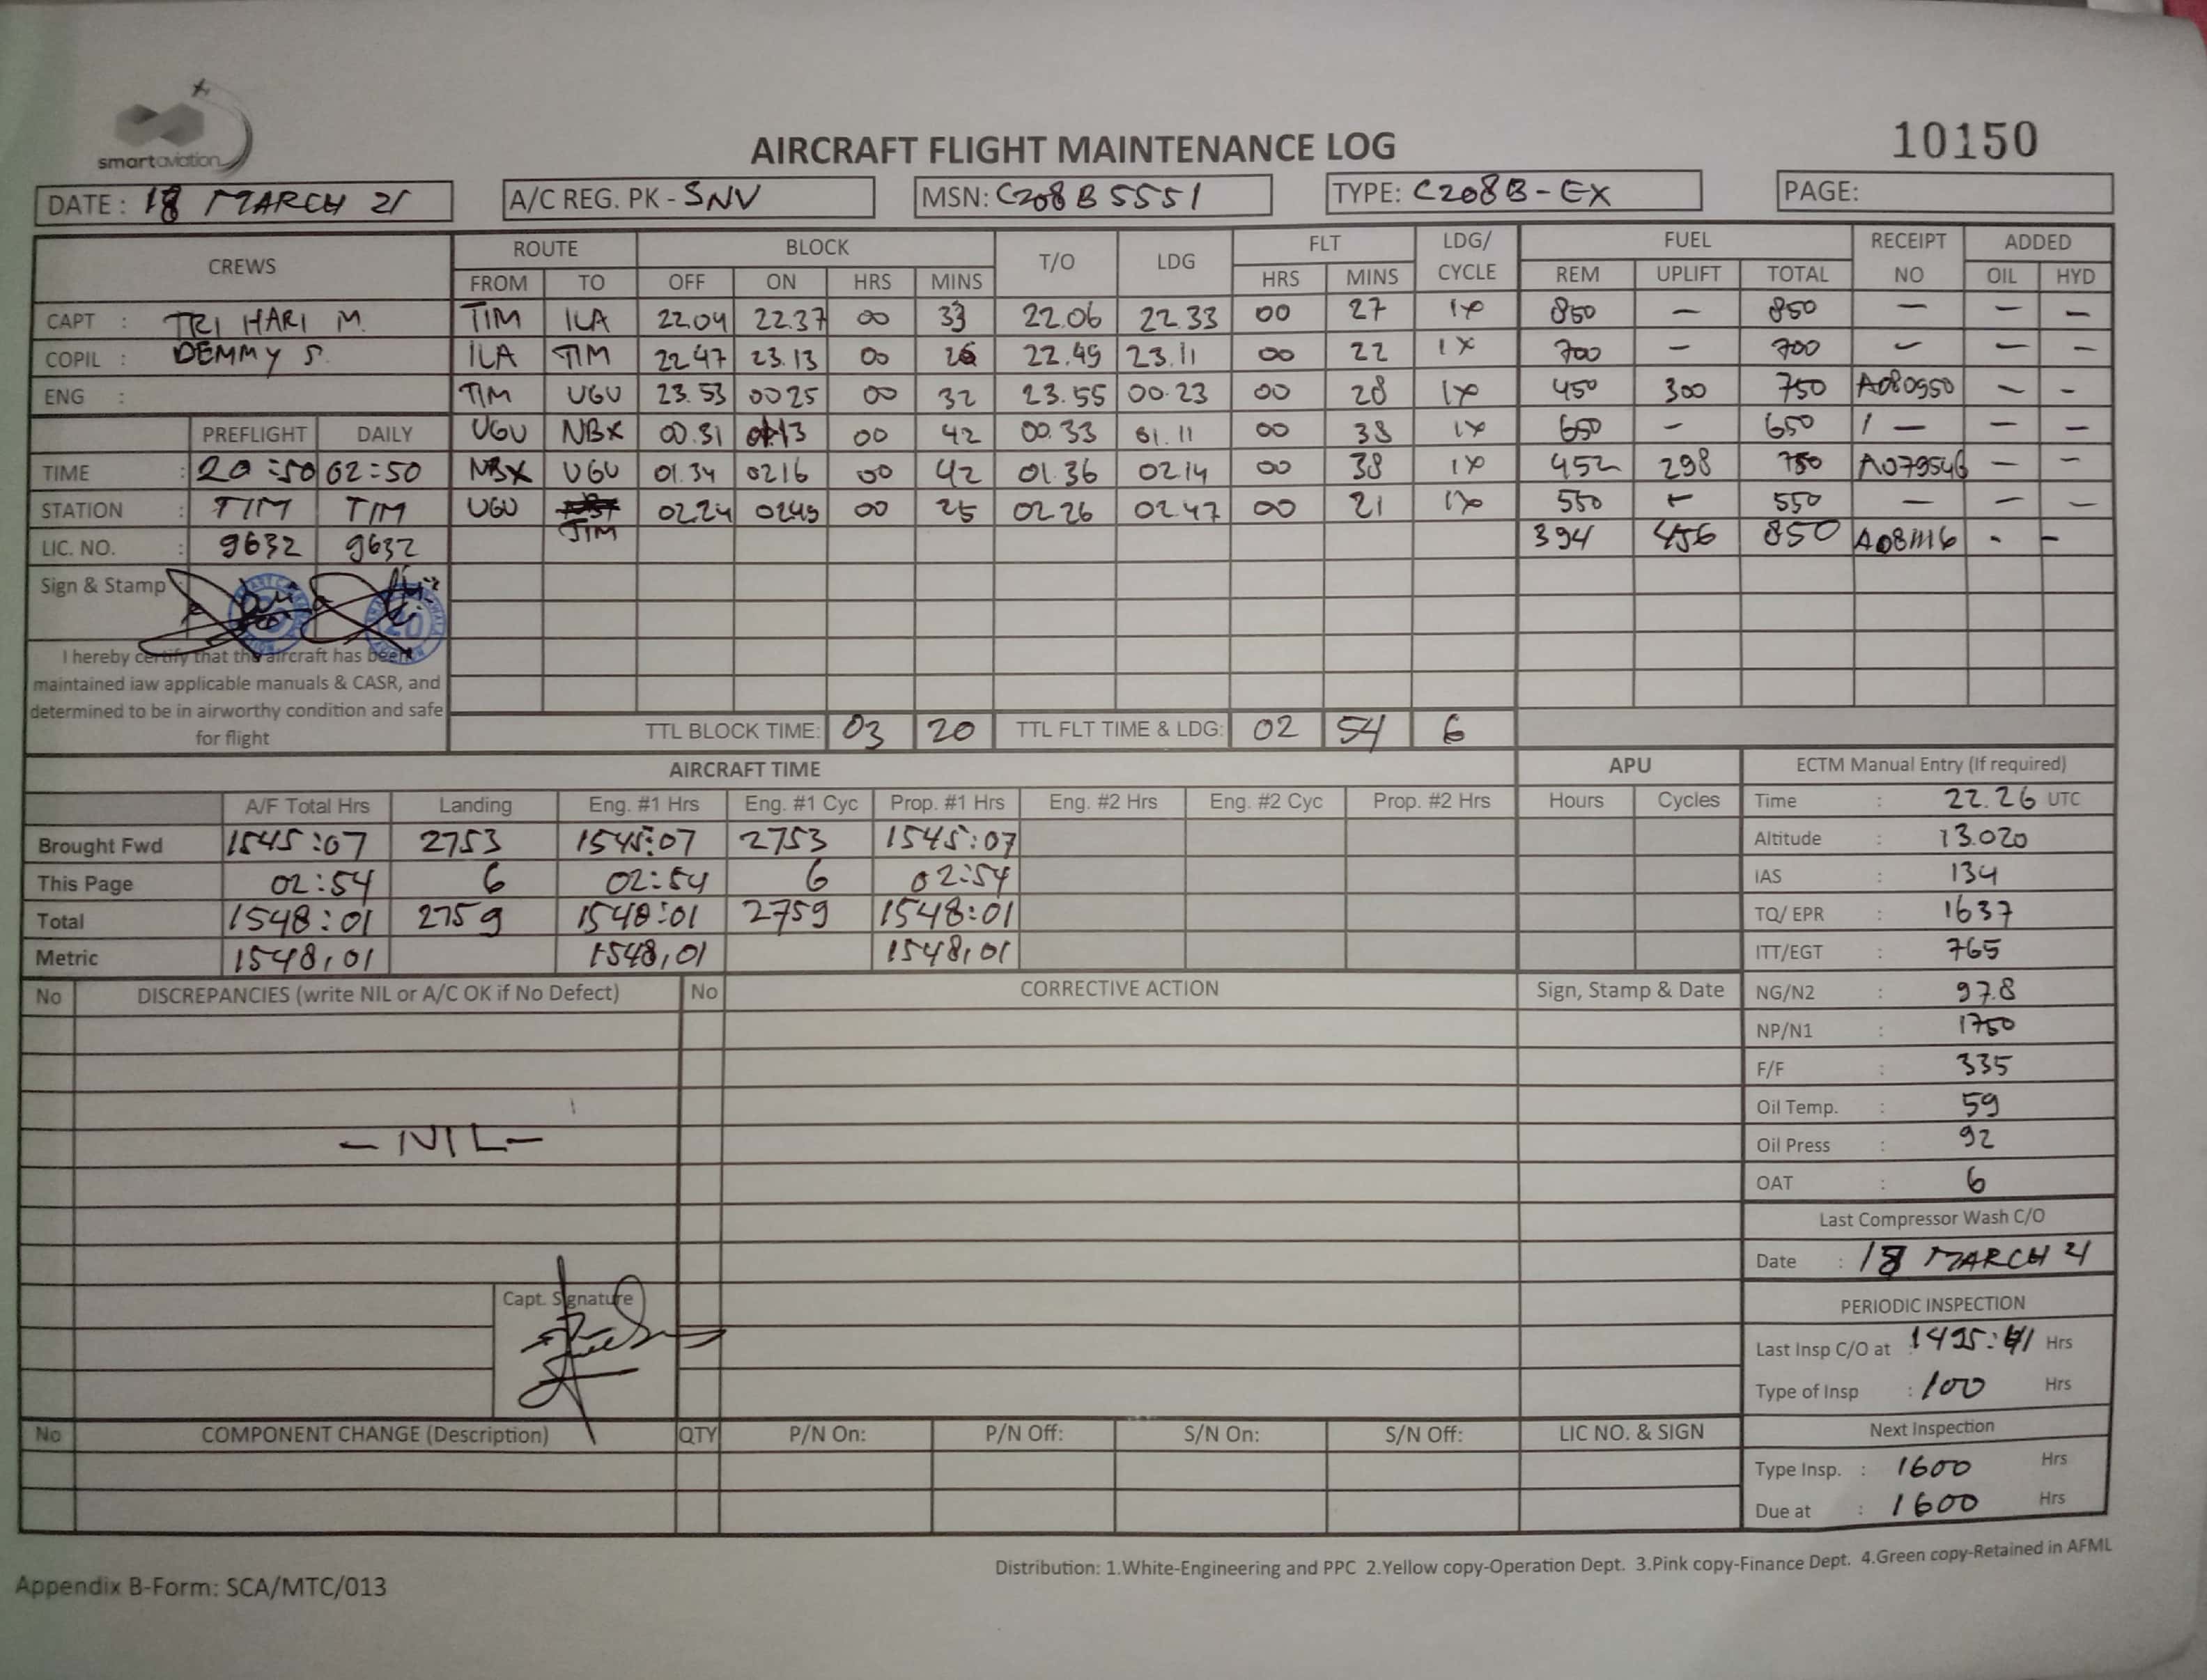 smartaviation
AIRCRAFT FLIGHT MAINTENANCE LOG
10150
DATE : 18 MARCH 21 A/C REG. PK - SNV MSN: C208B5551 TYPE: C208B-EX PAGE:
CREWS ROUTE BLOCK T/O LDG FLT LDG/ CYCLE FUEL RECEIPT NO ADDED
FROM TO OFF ON HRS MINS HRS MINS REM UPLIFT TOTAL OIL HYD
CAPT : TRI HARI M. TIM ILA 22.04 22.37 00 33 22.06 22.33 00 27 1x 850 — 850 — — —
COPIL : DEMMY S. ILA TIM 22.47 23.13 00 26 22.49 23.11 00 22 1x 700 — 700 — — —
ENG : TIM UGU 23.53 0025 00 32 23.55 00.23 00 28 1x 450 300 750 A080950 — —
PREFLIGHT DAILY UGU NBX 00.31 0113 00 42 00.33 01.11 00 38 1x 650 — 650 / — — —
TIME : 20:50 02:50 NBX UGU 01.34 0216 00 42 01.36 02.14 00 38 1x 452 298 750 A079546 — —
STATION : TIM TIM UGU TIM 02.24 0249 00 25 02.26 02.47 00 21 1x 550 — 550 — — —
LIC. NO. : 9632 9632 394 456 850 A081116 - -
Sign & Stamp
I hereby certify that the aircraft has been
maintained iaw applicable manuals & CASR, and
determined to be in airworthy condition and safe
for flight
TTL BLOCK TIME: 03 20 TTL FLT TIME & LDG: 02 54 6
AIRCRAFT TIME APU ECTM Manual Entry (If required)
A/F Total Hrs Landing Eng. #1 Hrs Eng. #1 Cyc Prop. #1 Hrs Eng. #2 Hrs Eng. #2 Cyc Prop. #2 Hrs Hours Cycles Time : 22.26 UTC
Brought Fwd 1545:07 2753 1545:07 2753 1545:07 Altitude : 13.020
This Page 02:54 6 02:54 6 02:54 IAS : 134
Total 1548:01 2759 1548:01 2759 1548:01 TQ/ EPR : 1637
Metric 1548,01 1548,01 1548,01 ITT/EGT : 765
No DISCREPANCIES (write NIL or A/C OK if No Defect) No CORRECTIVE ACTION Sign, Stamp & Date NG/N2 : 97.8
NP/N1 : 1750
F/F : 335
Oil Temp. : 59
— NIL — Oil Press : 92
OAT : 6
Last Compressor Wash C/O
Date : 18 MARCH 21
Capt. Signature
PERIODIC INSPECTION
Last Insp C/O at : 1495:41 Hrs
Type of Insp : 100 Hrs
No COMPONENT CHANGE (Description) QTY P/N On: P/N Off: S/N On: S/N Off: LIC NO. & SIGN Next Inspection
Type Insp. : 1600 Hrs
Due at : 1600 Hrs
Distribution: 1.White-Engineering and PPC 2.Yellow copy-Operation Dept. 3.Pink copy-Finance Dept. 4.Green copy-Retained in AFML
Appendix B-Form: SCA/MTC/013